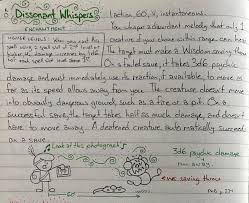 Dissonant Whispers
ENCHANTMENT
1 action, 60, V, instantaneous.
HIGHER LEVELS: When you cast this
spell using a spell slot of 2nd level or
higher, the damage increases by 1d6
for each spell slot level
You a discordant melody that only 1
creature of your choice within range can hear
The target must make a Wisdom saving throw
On a failed save, it takes 3d6 psychic
damage and must immediately use its reaction, if available, to move as
far as its speed allows away from you. The creature doesn't move
into obviously dangerous ground, such as a fire or a pit. On a
successful save, the target takes half as much damage, and doesn't
have to move away. A deafened creature automatically succeeds
on a save
Look at this photograph
3d6 psychic damage
run away
saving throw